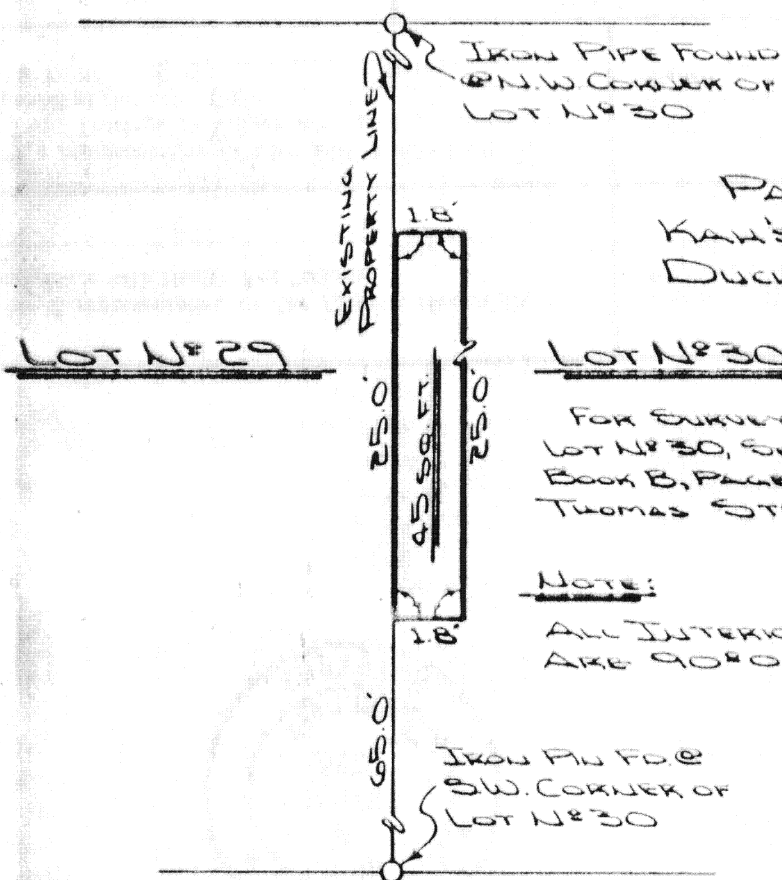 IRON PIPE FOUND
@ N.W. CORNER OF
LOT Nº 30
EXISTING
PROPERTY LINE
1.8'
KAH'S
LOT Nº 29
LOT Nº 30
25.0'
45 SQ. FT.
25.0'
FOR SURVEY
LOT Nº 30,
BOOK B, PAGE
THOMAS
NOTE:
1.8'
ALL INTERIO
ARE 90º0
65.0'
IRON PIN FD. @
S.W. CORNER OF
LOT Nº 30